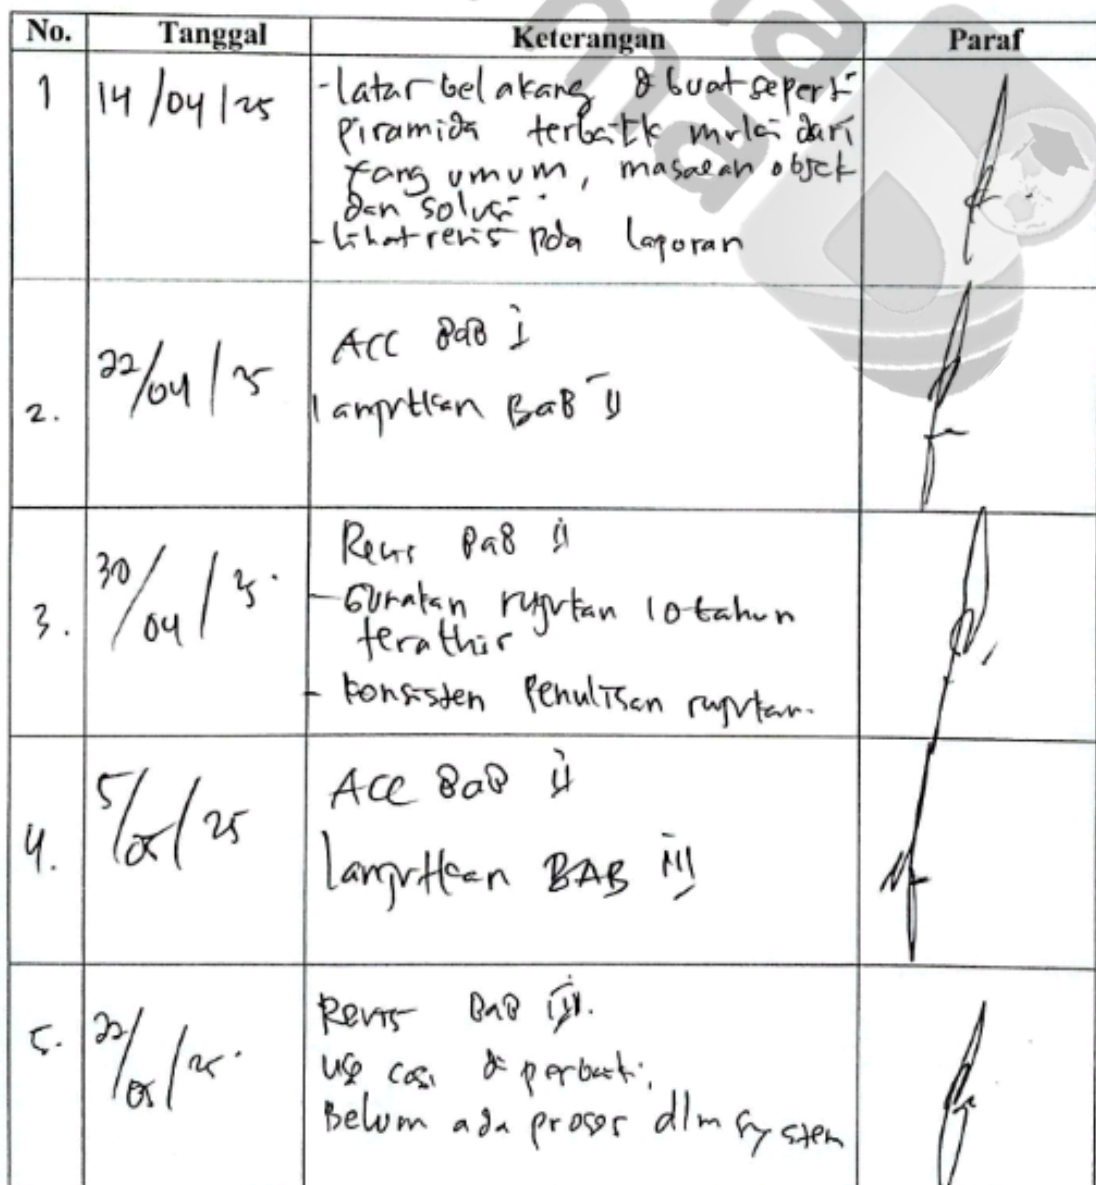 No. Tanggal Keterangan Paraf
1 14/04/25 - latar belakang di buat seperti
piramida terbalik mulai dari
yang umum, masalah objek
dan solusi
- lihat revisi pda laporan
2. 22/04/25 ACC BaB I
lanjutkan BaB II
3. 30/04/25. Revisi BaB II
- Gunakan rujukan 10 tahun
terakhir
- konsisten Penulisan rujukan.
4. 5/05/25 ACC BaB II
lanjutkan BAB III
5. 22/05/25. Revisi BaB III.
use case di perbaiki,
Belum ada proses dlm system